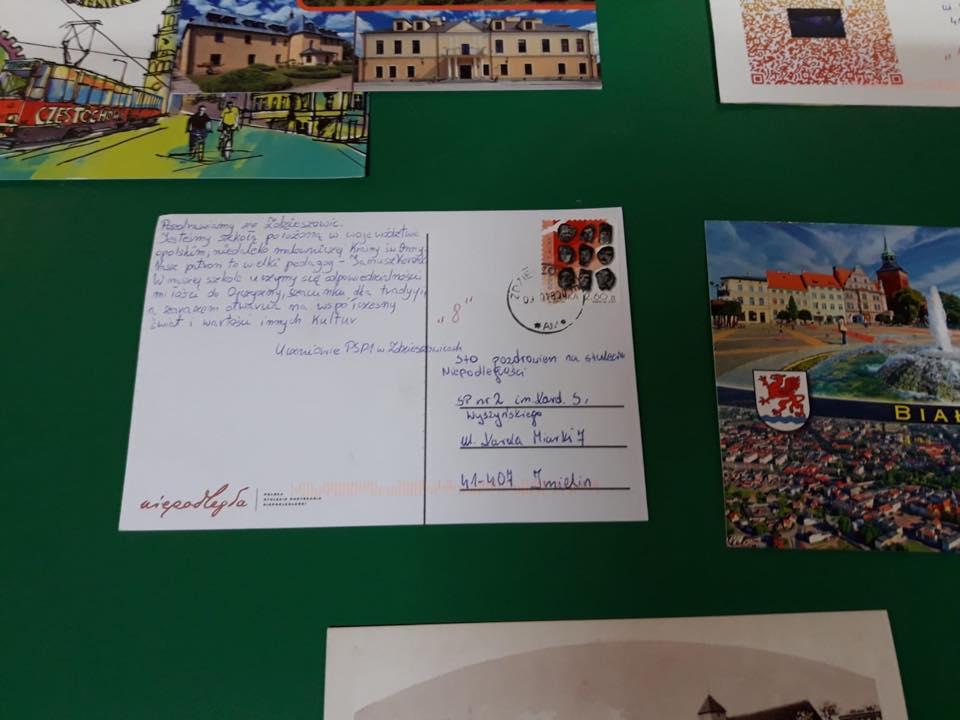 CZĘSTOCHOWA
Pozdrawiamy ze Zdzieszowic.
Jesteśmy szkołą położoną w województwie
opolskim, niedaleko malowniczej Krainy św. Anny.
Nasz patron to wielki pedagog - Janusz Korczak
W naszej szkole uczymy się odpowiedzialności
miłości do Ojczyzny, szacunku dla tradycji,
a zarazem otwarcia na współczesny
świat i wartości innych kultur
Uczniowie PSP1 w Zdzieszowicach
niepodległa
POLSKA
STULECIE ODZYSKANIA
NIEPODLEGŁOŚCI
„8”
Sto pozdrowień na stulecie
Niepodległości
SP nr 2 im. Kard. S.
Wyszyńskiego
ul. Karola Miarki 7
41-407 Imielin
BIAŁ